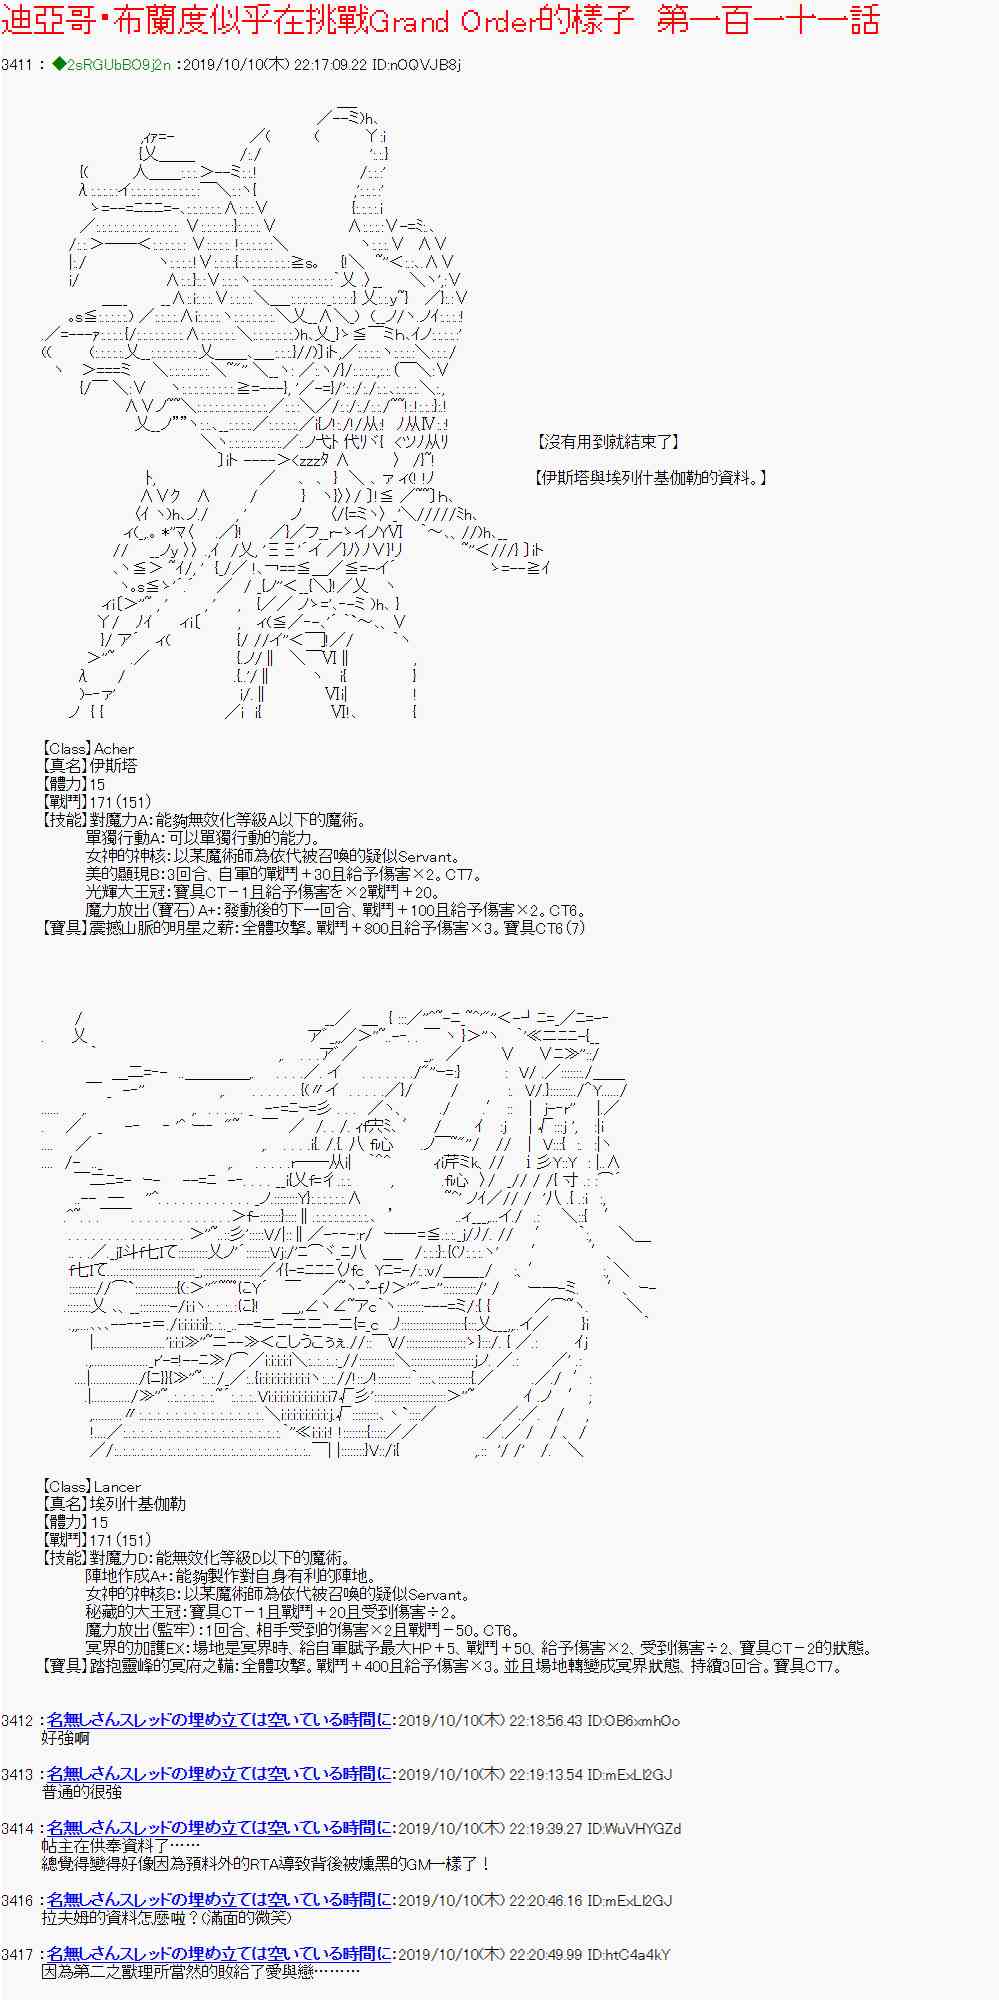 迪亞哥・布蘭度似乎在挑戰Grand Order的樣子　第一百一十一話
3411 : ◆2sRGUbBO9j2n :2019/10/10(木) 22:17:09.22 ID:nOQVJB8j
【沒有用到就結束了】
【伊斯塔與埃列什基伽勒的資料。】
【Class】Acher
【真名】伊斯塔
【體力】15
【戰鬥】171(151)
【技能】對魔力A:能夠無效化等級A以下的魔術。
單獨行動A:可以單獨行動的能力。
女神的神核:以某魔術師為依代被召喚的疑似Servant。
美的顯現B:3回合、自軍的戰鬥＋30且給予傷害×2。CT7。
光輝大王冠:寶具CT－1且給予傷害を×2戰鬥＋20。
魔力放出(寶石)A+:發動後的下一回合、戰鬥＋100且給予傷害×2。CT6。
【寶具】震撼山脈的明星之薪:全體攻擊。戰鬥＋800且給予傷害×3。寶具CT6(7)
【Class】Lancer
【真名】埃列什基伽勒
【體力】15
【戰鬥】171(151)
【技能】對魔力D:能無效化等級D以下的魔術。
陣地作成A+:能夠製作對自身有利的陣地。
女神的神核B:以某魔術師為依代被召喚的疑似Servant。
秘藏的大王冠:寶具CT－1且戰鬥＋20且受到傷害÷2。
魔力放出(監牢):1回合、相手受到的傷害×2且戰鬥－50。CT6。
冥界的加護EX:場地是冥界時、給自軍賦予最大HP＋5、戰鬥＋50、給予傷害×2、受到傷害÷2、寶具CT－2的狀態。
【寶具】踏抱靈峰的冥府之鞴:全體攻擊。戰鬥＋400且給予傷害×3。並且場地轉變成冥界狀態、持續3回合。寶具CT7。
3412 :名無しさんスレッドの埋め立ては空いている時間に:2019/10/10(木) 22:18:56.43 ID:OB6xmhOo
好強啊
3413 :名無しさんスレッドの埋め立ては空いている時間に:2019/10/10(木) 22:19:13.54 ID:mExLl2GJ
普通的很強
3414 :名無しさんスレッドの埋め立ては空いている時間に:2019/10/10(木) 22:19:39.27 ID:WuVHYGZd
帖主在供奉資料了……
總覺得變得好像因為預料外的RTA導致背後被燻黑的GM一樣了！
3416 :名無しさんスレッドの埋め立ては空いている時間に:2019/10/10(木) 22:20:46.16 ID:mExLl2GJ
拉夫姆的資料怎麼啦？(滿面的微笑)
3417 :名無しさんスレッドの埋め立ては空いている時間に:2019/10/10(木) 22:20:49.99 ID:htC4a4kY
因為第二之獸理所當然的敗給了愛與戀………